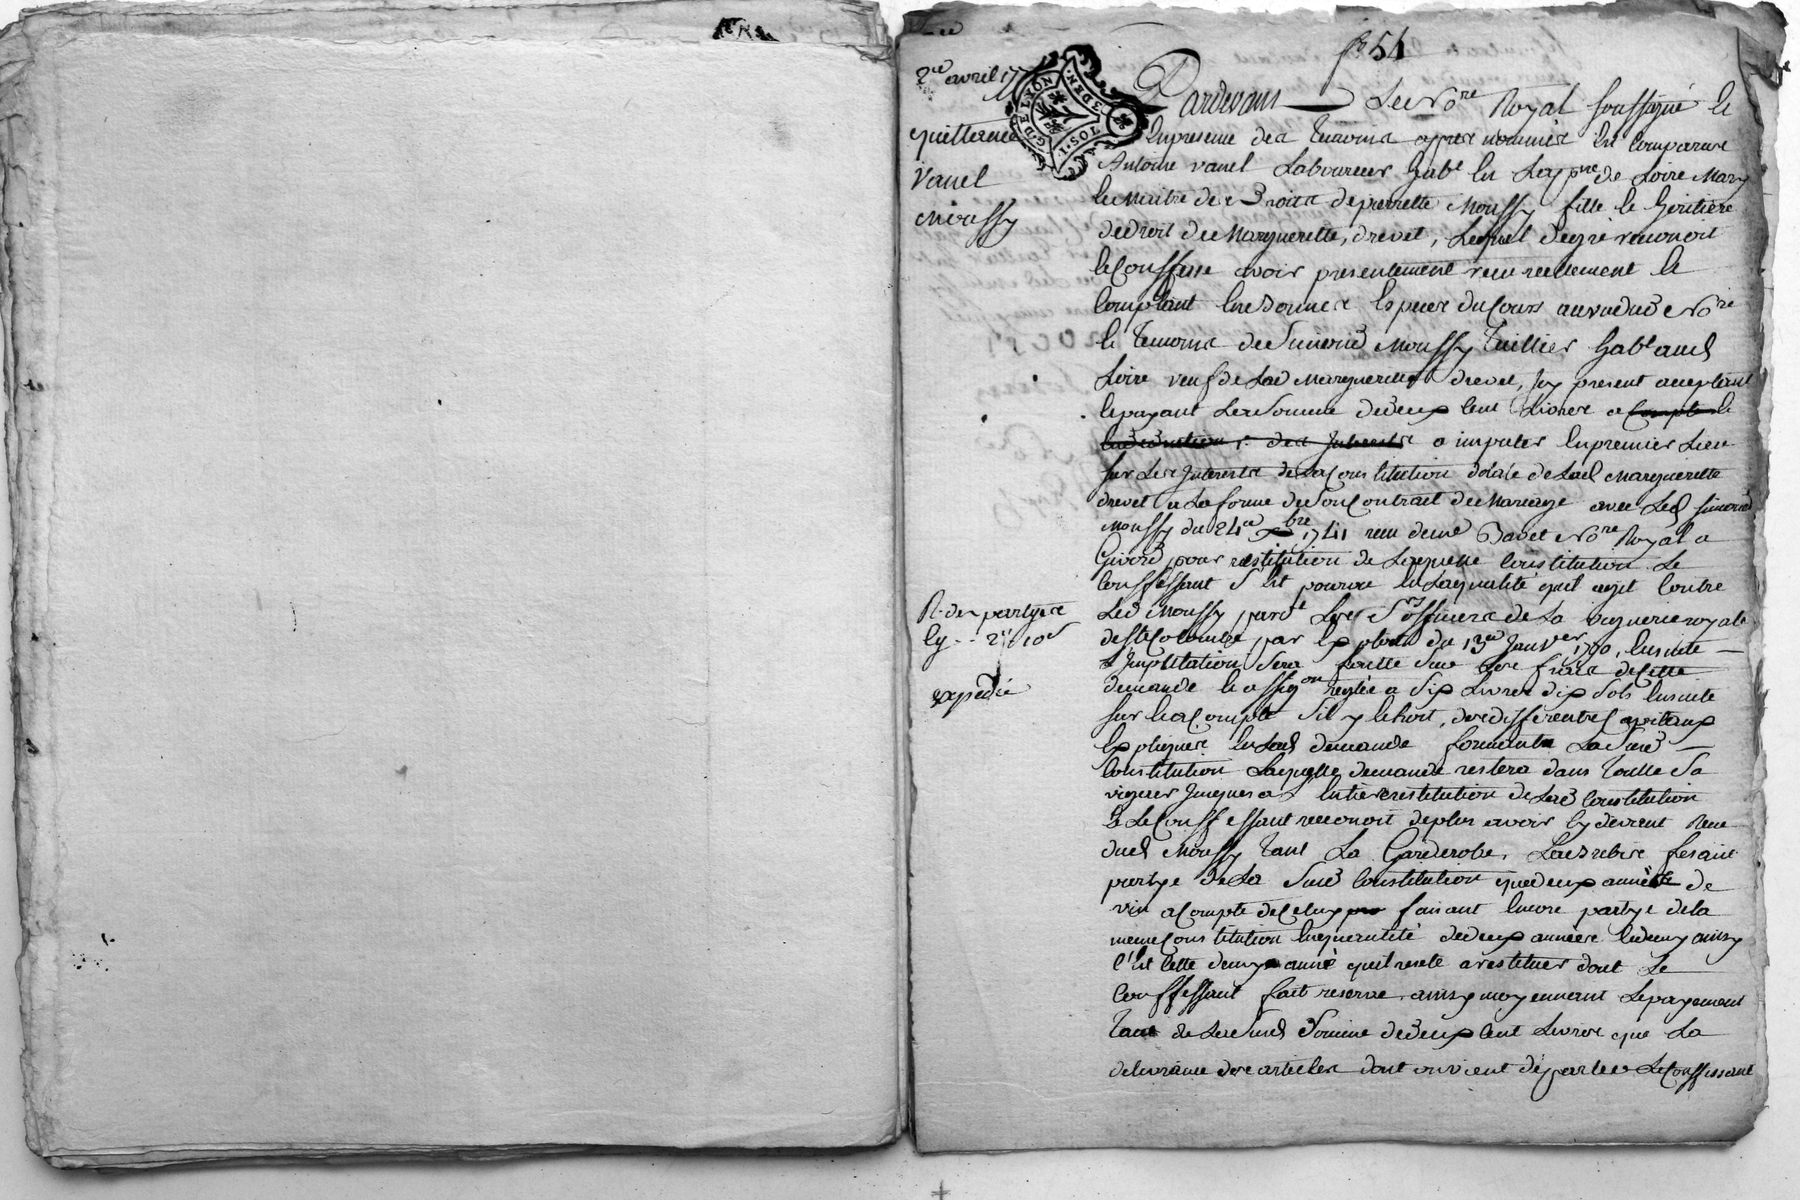 fo 54
2e avril 177
quittance
Vanel
Moussy
G. DE LYON
3 DEN.
1. SOL
Pardevant Le No.re Royal soussigné &
En presence des temoins apres nommés Est comparu
Antoine vanel Laboureur hab.t En La p.sse de Loire Mary
& Maitre des Droits de pierrette Moussy fille & heritiere
de droit de Marguerette drevet, Lequel de gré reconoit
& Confesse avoir presentement reçu reellement &
Comptant En bonnes Especes du Cours au vu dud No.re
& temoins de Simond Moussy tuillier hab.t aud
Loire veuf de Lad Marguerette drevet, Icy present acceptant
& payant La Somme de deux Cent Livres a Compte &
En deduction des Interests a imputer En premier Lieu
sur Les Interests de La Constitution dotale de Lad Marguerette
drevet a La forme de Son Contrat de Mariage avec Led Simond
Moussy du 24e xbre 1741 reçu de me No.re Royal a
Givord, pour restitution de Laquelle Constitution Le
Confessant S'est pourvu En La qualité quil agit Contre
Led Moussy pard.t Les Srs officiers de La viguerie royale
de Ste Colombe par Exploit du 13e Janvier 1770, Ensuite
Imputation Sera faitte Sur Les frais de Cette
demande & assig.on reglés a Six Livres dix Sols Ensuite
sur & a Compte S'il y Echoit, des differents Capitaux
Expliqués En Lad demande formant La Susd
Constitution Laquelle demande restera dans toutte Sa
vigueur Jusques a L'entiere restitution de Lad Constitution
& Le Confessant reconoit de plus avoir Cy devant Reçu
dud Moussy tant La Garderobe, La brebis fesant
partye de La Susd Constitution que deux années de
vin a Compte de Celuy faisant Encore partye de la
meme Constitution En quantité de deux années & demy ainsy
C'est Cette demy année quil reste a restituer dont Le
Confessant fait reserve, ainsy moyennant Le payement
tant de La Susd Somme de deux Cent Livres que La
delivrance des articles dont on vient de parler Le Confessant
R. der partyere
Cy - 2# 10s
expedié